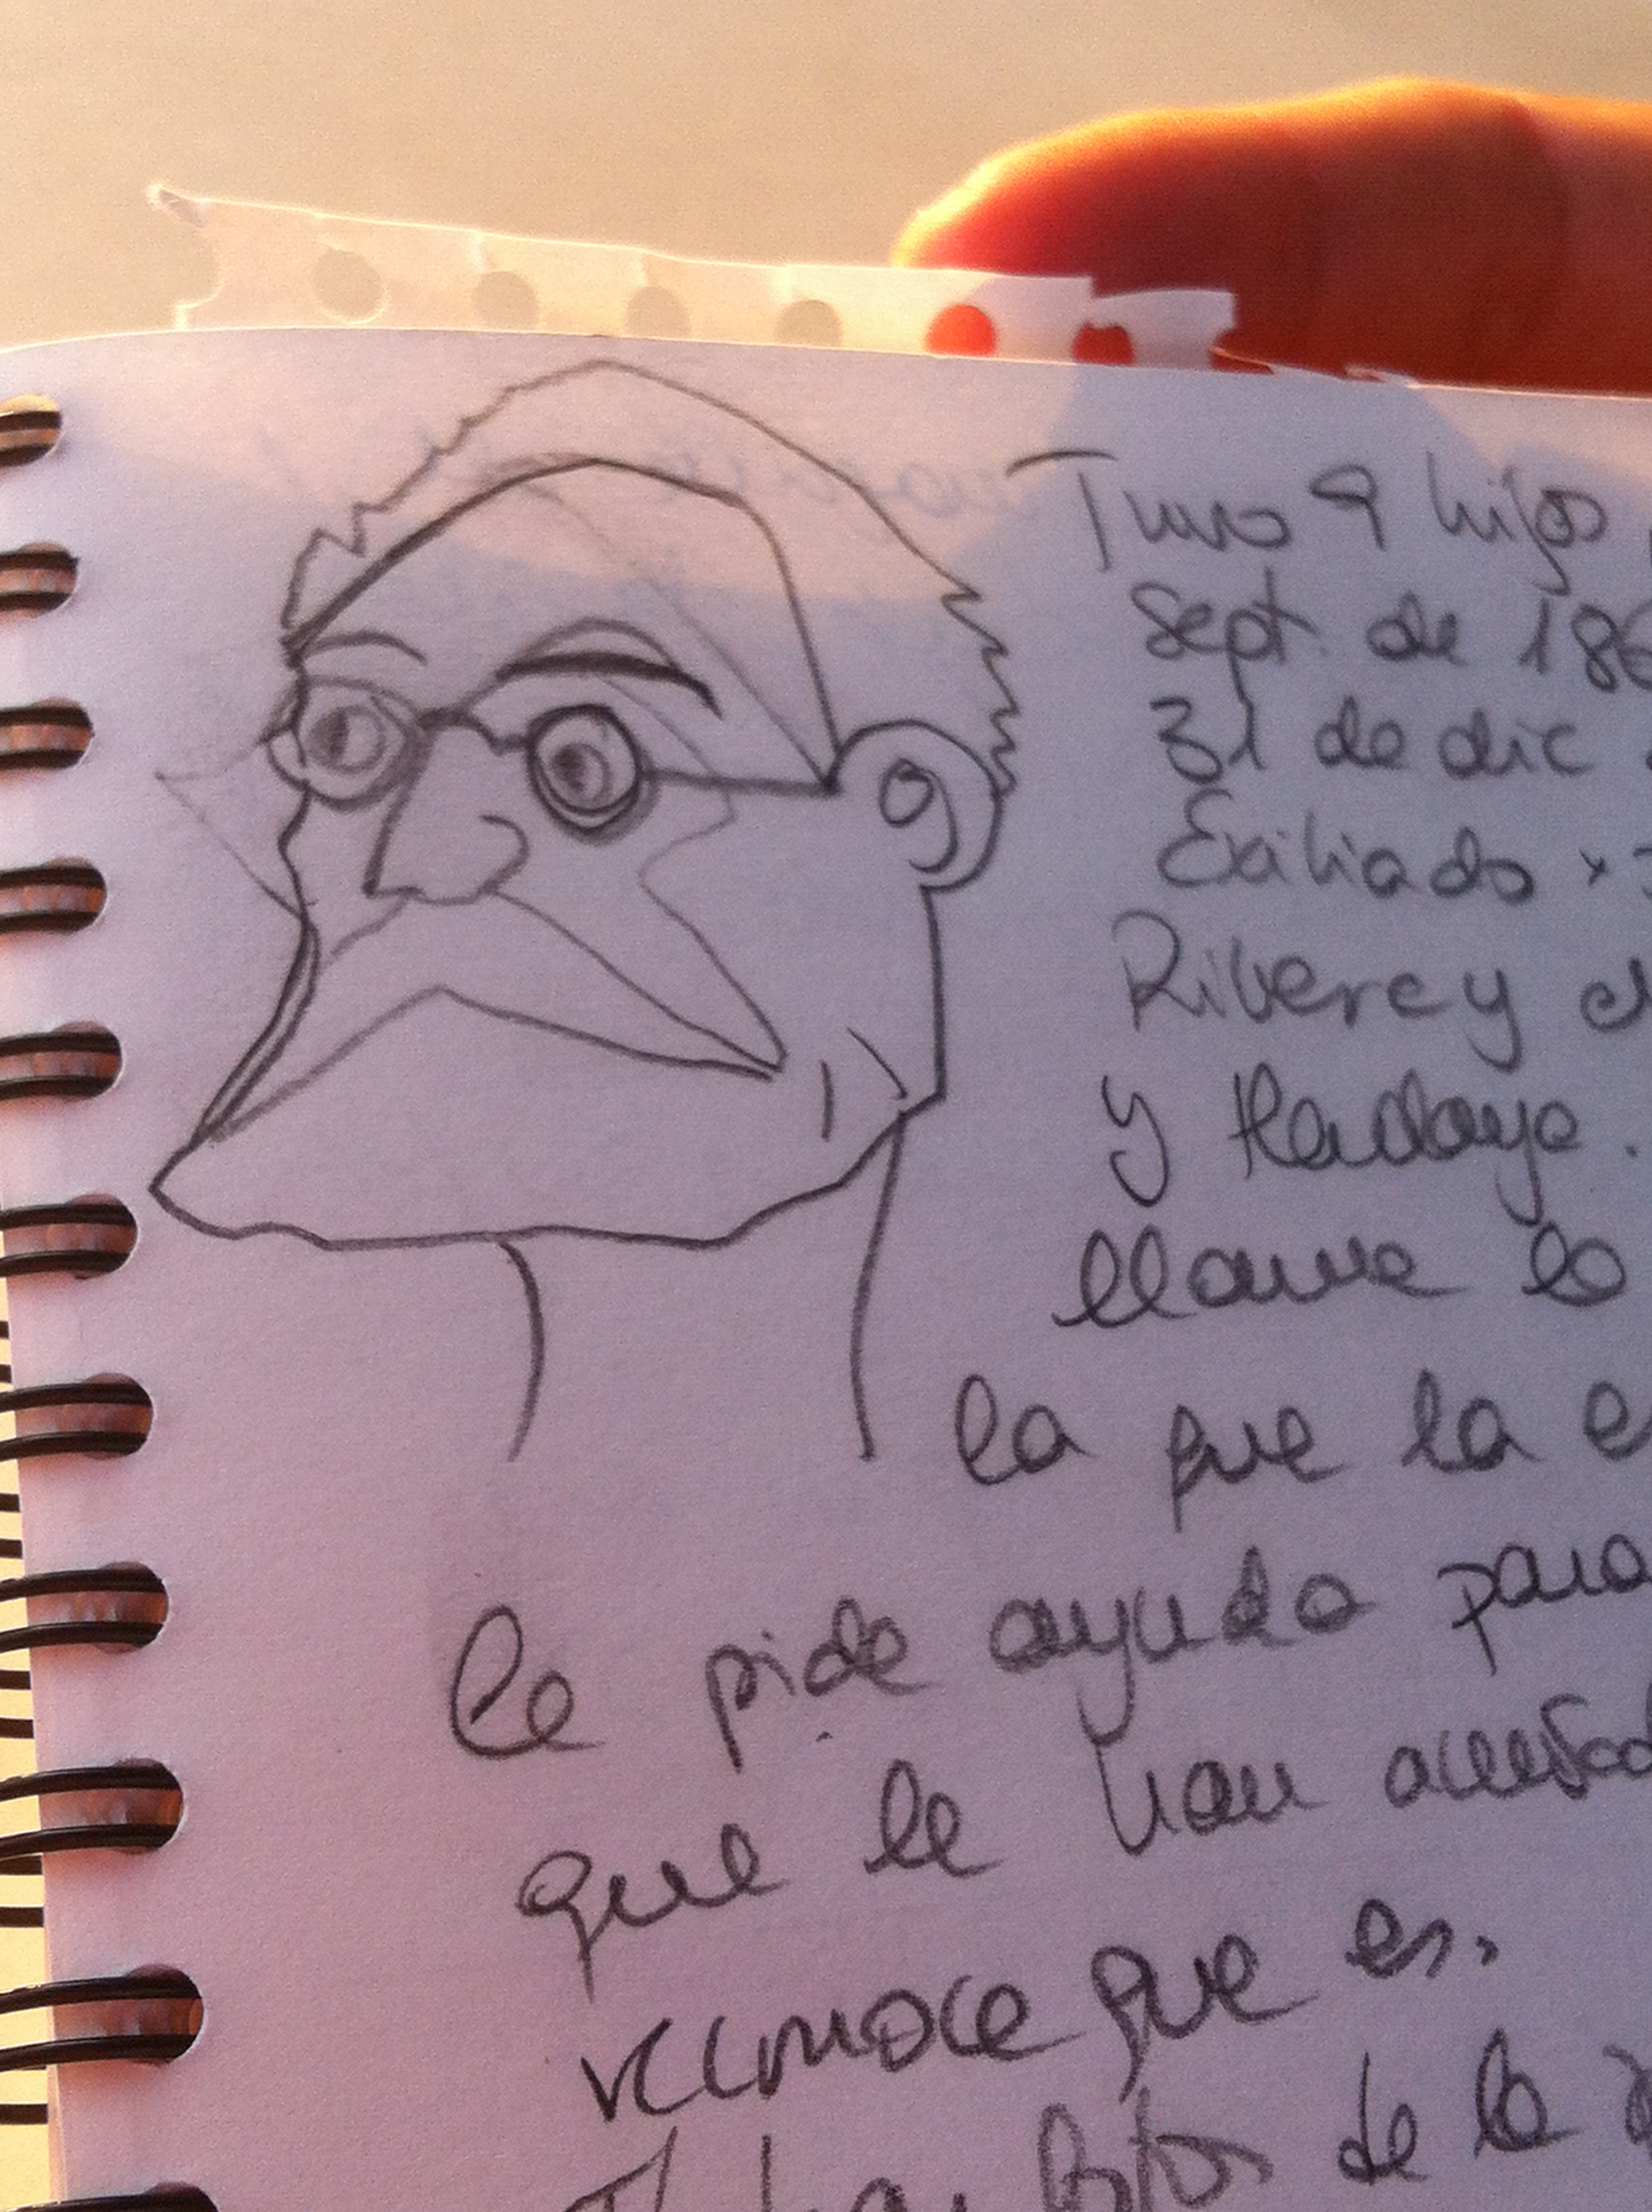 Tuvo 9 hijos
Sept. de 186
31 de dic
Exiliado x
Rivere y
y
llama lo
la que la
le pide ayuda para
que le han
reconoce que es.
fotos de la